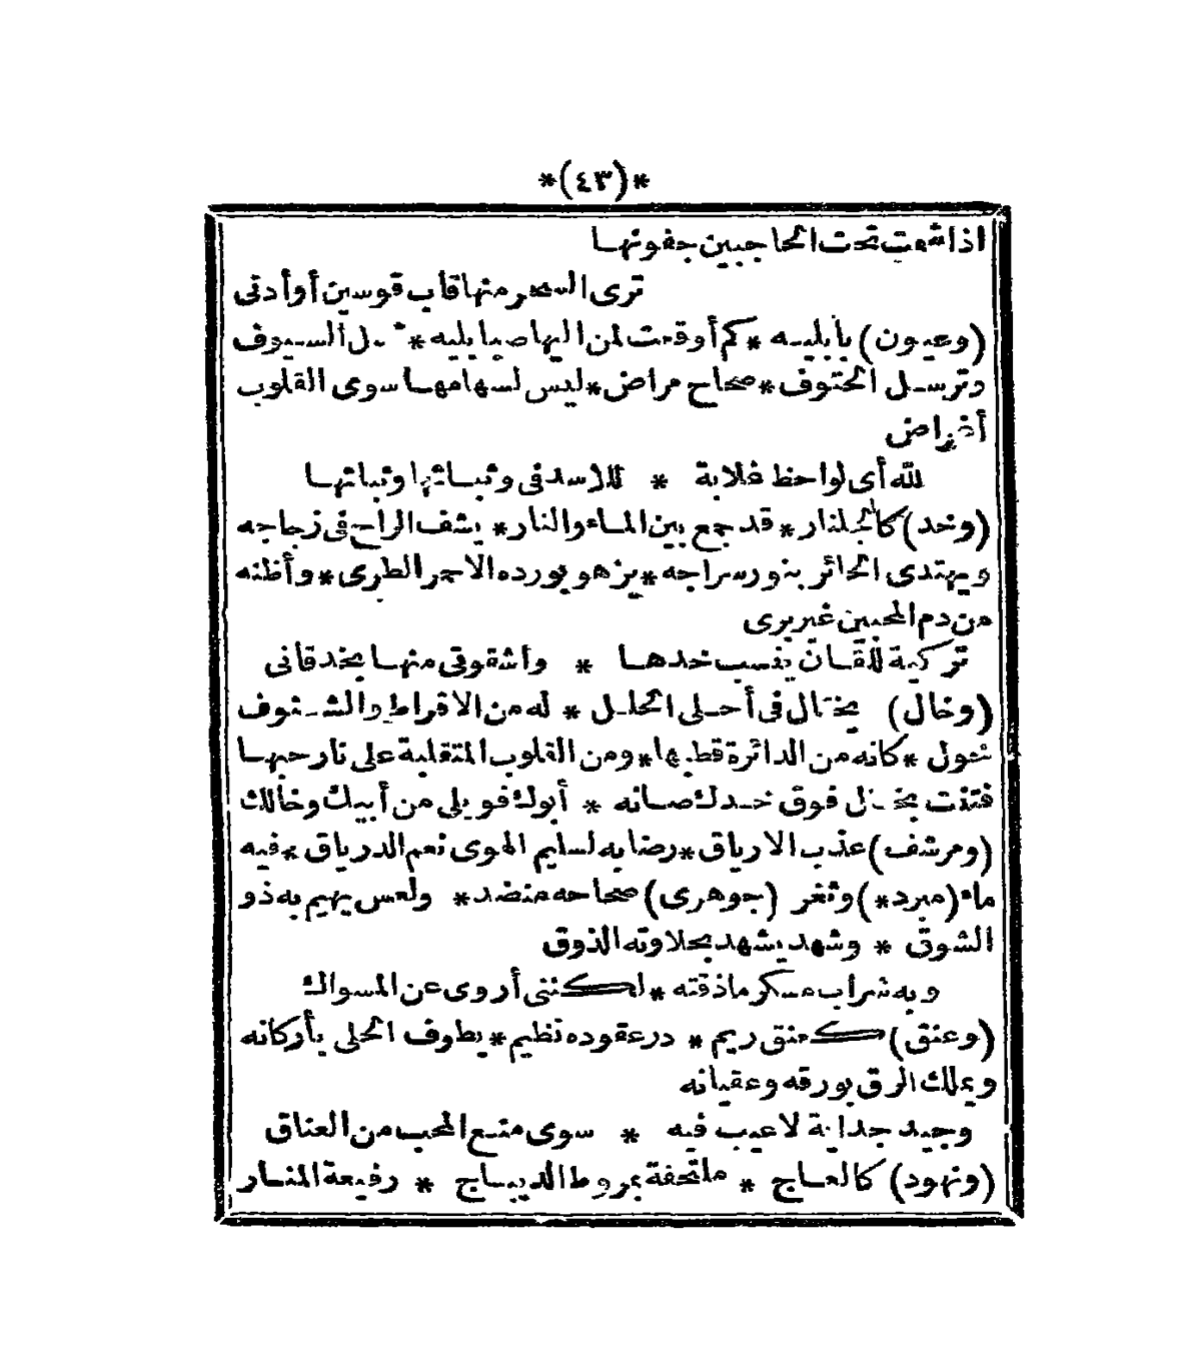 *(٤٣)*
اذا شمت تحت الحاجبين جفونها
ترى السحر منها قاب قوسين أو أدنى
(وعيون) بابليه * كم أوقعت لمن اليها صبا بليه * تسل السيوف
وترسل الحتوف * صحاح مراض * ليس لسهامها سوى القلوب
أغراض
لله أى لواحظ غلابة * للاسد فى وثباتها وثباتها
(وخد) كالجلنار * قد جمع بين الماء والنار * يشف الراح فى زجاجه
ويهتدى الحائر بنور سراجه * يزهو بورده الاحمر الطرى * وأظنه
من دم المحبين غير برى
تركية للقان ينسب خدها * واشقوتى منها بخد قانى
(وخال) يختال فى أحلى الحلل * له من الاقراط والشنوف
خول * كانه من الدائرة قطبها * ومن القلوب المتقلبة على نار حبها
فتنت بخال فوق خدك صانه * أبوك فويلى من أبيك وخالك
(ومرشف) عذب الارياق * رضابه لسليم الهوى نعم الدرياق * فيه
ماء (مبرد *) وثغر (جوهرى) صحاحه منضد * ولعس يهيم به ذو
الشوق * وشهد يشهد بحلاوته الذوق
وبه شراب مسكر ما ذقته * لكننى أروى عن المسواك
(وعنق) كعنق ريم * در عقوده نظيم * يطوف الحلى بأركانه
ويملك الرق بورقه وعقيانه
وجيد جداية لا عيب فيه * سوى منع المحب من العناق
(ونهود) كالعاج * ملتحفة بمروط الديباج * رفيعة المنار